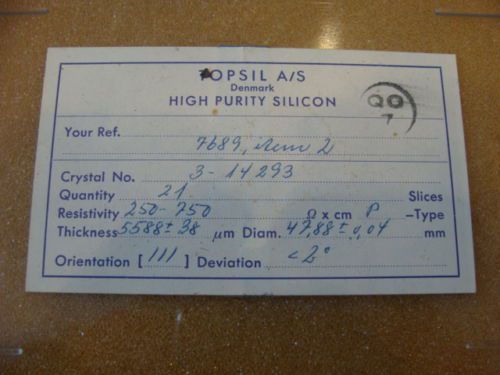 TOPSIL A/S
Denmark
HIGH PURITY SILICON
QO
7
Your Ref. 7689, item 2
Crystal No. 3-14293
Quantity 21 Slices
Resistivity 250-750 Ω x cm P -Type
Thickness 5588 ± 38 µm Diam. 47,88 ± 0,04 mm
Orientation [ 111 ] Deviation < 2°